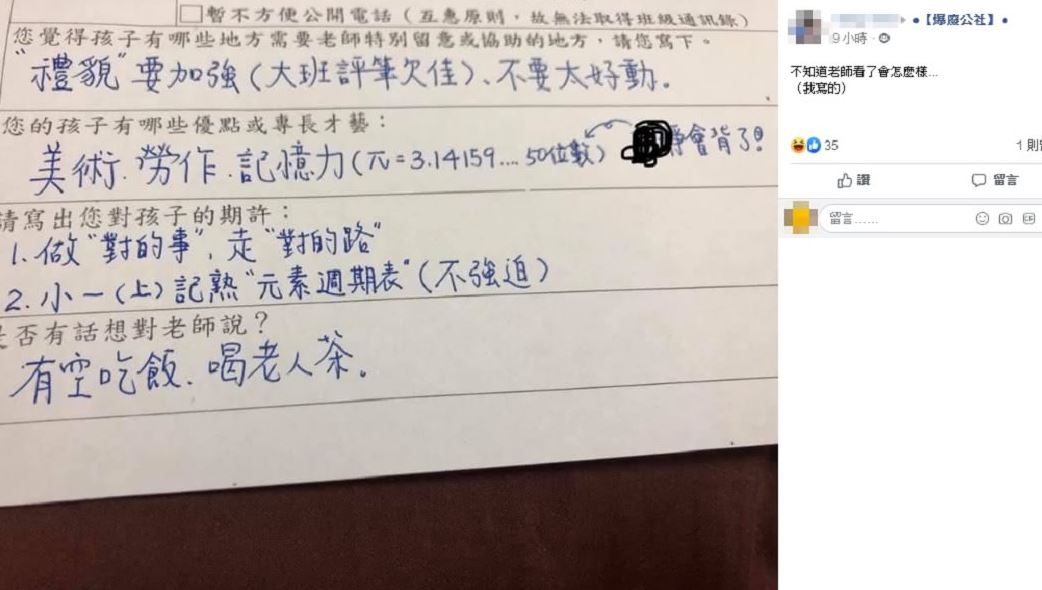 □暫不方便公開電話（互惠原則，故無法取得班級通訊錄）
您覺得孩子有哪些地方需要老師特別留意或協助的地方，請您寫下。
"禮貌"要加強（大班評筆欠佳）、不要太好動。
您的孩子有哪些優點或專長才藝：
美術、勞作、記憶力（π=3.14159....50位數）會背了!!
請寫出您對孩子的期許：
1.做"對的事"，走"對的路"
2.小一（上）記熟"元素週期表"（不強迫）
是否有話想對老師說？
有空吃飯、喝老人茶。
●【爆廢公社】●
9小時
不知道老師看了會怎麼樣...
（我寫的）
35
1則
讚
留言
留言……
GIF